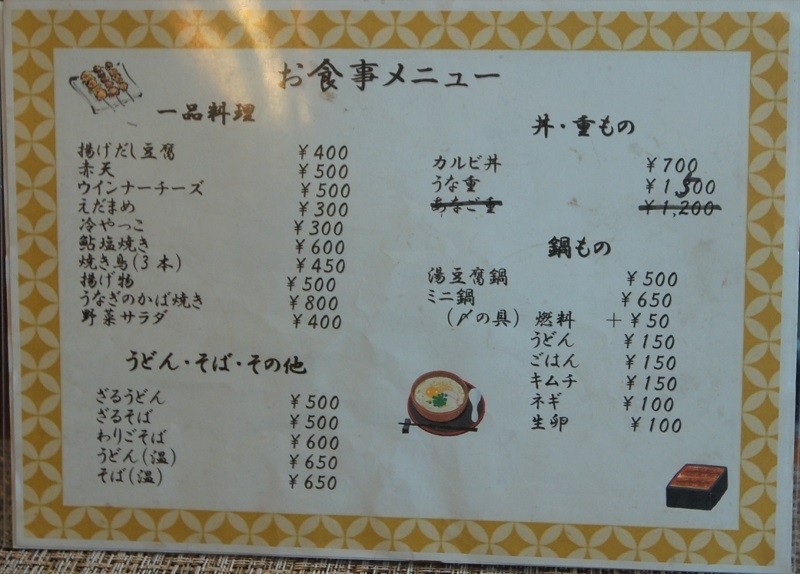 お食事メニュー
一品料理
揚げだし豆腐 ¥400
赤天 ¥500
ウインナーチーズ ¥500
えだまめ ¥300
冷やっこ ¥300
鮎塩焼き ¥600
焼き鳥(3本) ¥450
揚げ物 ¥500
うなぎのかば焼き ¥800
野菜サラダ ¥400
うどん・そば・その他
ざるうどん ¥500
ざるそば ¥500
わりごそば ¥600
うどん(温) ¥650
そば(温) ¥650
丼・重もの
カルビ丼 ¥700
うな重 ¥1500
あなご重 ¥1,200
鍋もの
湯豆腐鍋 ¥500
ミニ鍋 ¥650
(〆の具) 燃料 +¥50
うどん ¥150
ごはん ¥150
キムチ ¥150
ネギ ¥100
生卵 ¥100